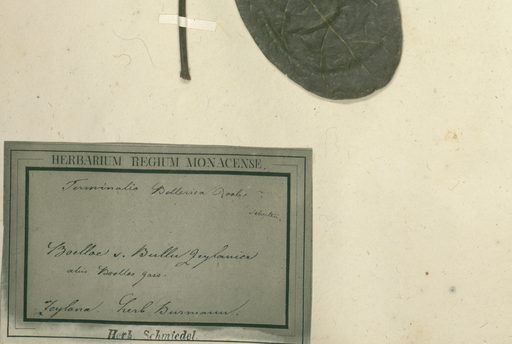 HERBARIUM REGIUM MONACENSE.
Terminalia Bellerica Roxb.
Boelloe s. Bullu Zeylanica
aliis Boelloe gass.
Zeylona. herb Burmann.
Herb. Schmiedel.